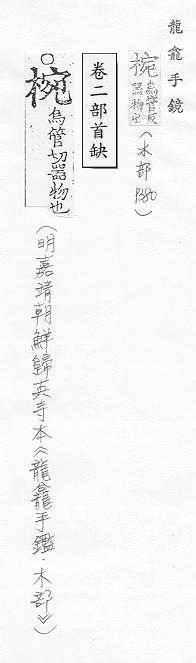 龍龕手鏡
椀烏管反器物也(木部 P.380)
卷二部首缺
椀烏管切器物也
(明嘉靖朝鮮歸英寺本《龍龕手鑑.木部》)